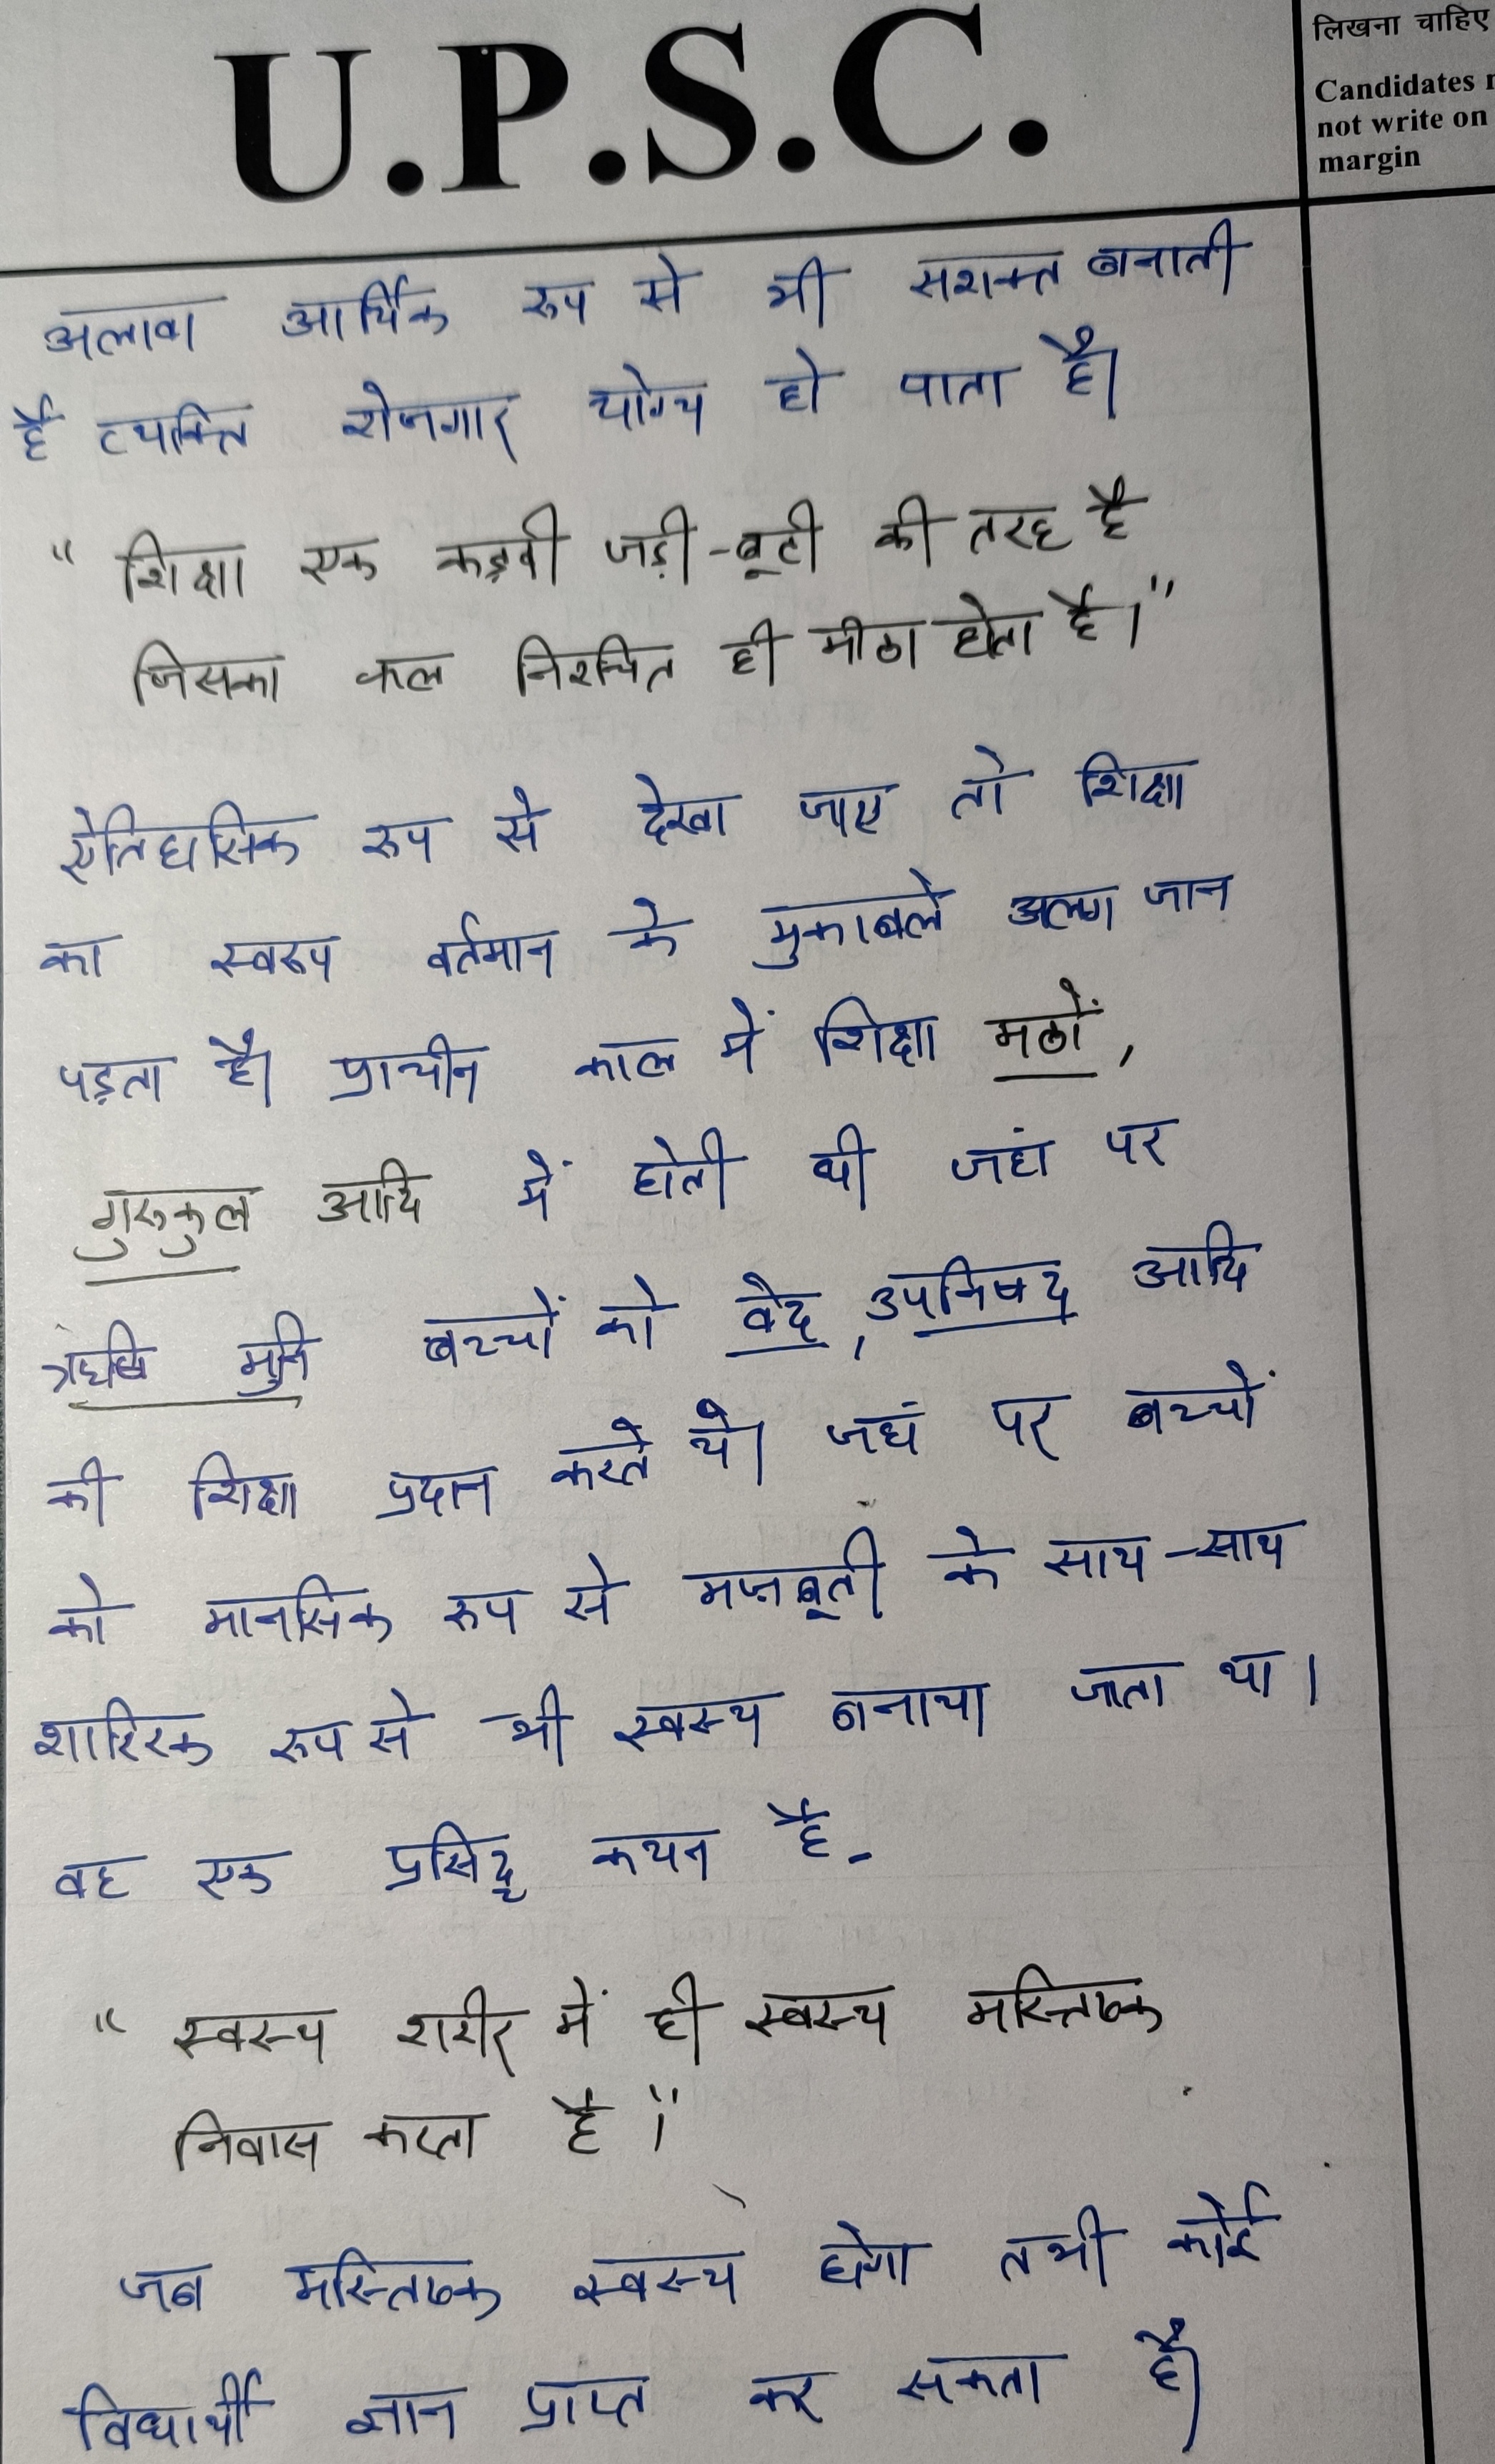 U.P.S.C.
लिखना चाहिए
Candidates
not write on
margin
अलावा आर्थिक रूप से भी सशक्त बनाती
है व्यक्ति रोजगार योग्य हो पाता है।
" शिक्षा एक कड़वी जड़ी-बूटी की तरह है
जिसका फल निश्चित ही मीठा होता है।"
ऐतिहासिक रूप से देखा जाए तो शिक्षा
का स्वरूप वर्तमान के मुकाबले अलग जान
पड़ता है। प्राचीन काल में शिक्षा मठों,
गुरुकुल आदि में होती थी जहां पर
ऋषि मुनि बच्चों को वेद, उपनिषद आदि
की शिक्षा प्रदान करते थे। जहां पर बच्चों
को मानसिक रूप से मजबूती के साथ-साथ
शारिरिक रूप से भी स्वस्थ बनाया जाता था।
वह एक प्रसिद्ध कथन है-
" स्वस्थ शरीर में ही स्वस्थ मस्तिष्क
निवास करता है।"
जब मस्तिष्क स्वस्थ होगा तभी कोई
विद्यार्थी ज्ञान प्राप्त कर सकता है।